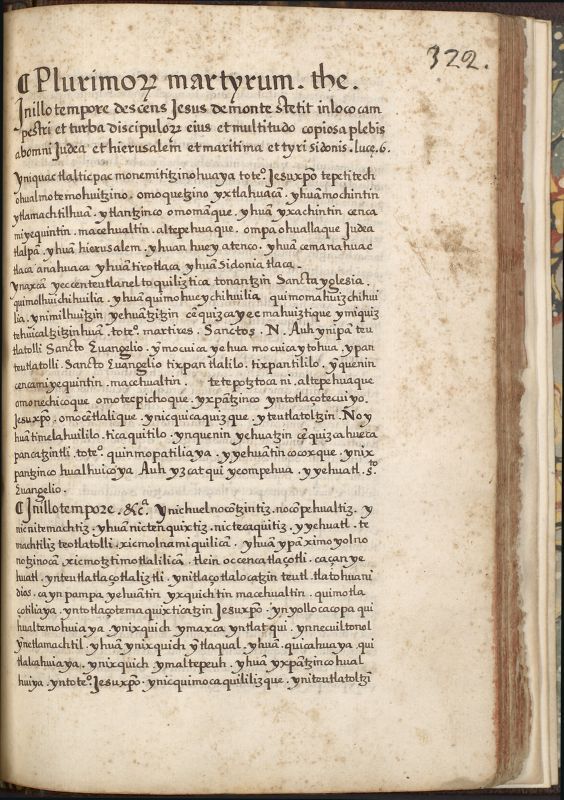 322.
¶ Plurimoꝝ martyrum. the.
Inillo tempore descẽs Jesus demonte stetit inloco cam
pestri et turba discipuloꝝ eius et multitudo copiosa plebis
abomni Judea et hierusalem et maritima et tyri sidonis. luce. 6.
yniquac tlalticpac monemititzino huaya toteº. Jesuxp̃o tepxtitech
ohualmotemohuitzino. omoquetzino yxtlahuacã. yhuã mochintin
ytlamachtilhuã. ytlantzinco omomãque. yhuã yxachintin cenca
miyequintin. macehualtin. altepehuaque. ompa ohuallaque Judea
tlalpã. yhuã hierusalem. yhuan huey atenco. yhuã cemanahuac
tlaca anahuaca yhuã tirotlaca yhuã sidonia tlaca.
ynaxcã yeccenteutlanel toquiliztica tonantzin Sancta yglesia.
quimolhuichihuilia. yhuã quimohueychihuilia quimomahuizchihui
lia. ynimilhuitzin yehuãtzitzin cẽquizcayecmahuiztique ymiquiz
tehuicaltzitzinhuã. toteº. martires. Sanctos. N. Auh ynipã teu
tlatolli Sancto Euangelio. ymocuicayehua mocuicaytohua. ypan
teutlatolli. Sancto Euangelio tixpan tlalilo. tixpantililo. yquenin
cencamiyequintin. macehualtin. altepehuaque
omonechicoque omotecpichoque. yxpãtzinco yntotlaçotecuiyo.
Jesuxp̃o. omocẽtlalique. ynicquicaquizque. yteutlatoltzin. No y
huã timelahuililo. ticaquitilo. ynquenin yehuatzin cẽquizcahueca
pancatzintli. toteº. quinmopatiliaya. yyehuãtin cocoxque. ynix
pantzinco hualhuicoya Auh yzcatqui ycompehua. yyehuatl. S.to
Euangelio.
¶ Inillo tempore. &c.a ynichuelnocõtzintiz. nocõpehualtiz. y
nicnitemachtiz. yhuã nictenquixtiz. nictecaquitiz. yyehuatl. te
machtiliz teotlatolli. xicmolnamiquilicã. yhuã ypãximoyolno
notzinocã xicmotztimotlalilicã. tlein occencatlaçotli. caçan ye
huatl. ynteutlatlaçotlaliztli. ynitlaçotlalocatzin teutl. tlatohuani
dios. ca yn pampa yehuãtin yxquichtin macehualtin. quimotla
çotiliaya. yntotlaçotemaquixticatzin Jesuxp̃o. ynyollocacopa qui
hualtemohuiaya. ynixquich ymaxca yntlatqui. ynnecuiltonol
ynetlamachtil. yhuã ynixquich ytlaqual. yhuã. quicahuaya. qui
tlalcahuiaya. ynixquich ymaltepeuh. yhuã yxpãtzinco hual
huiya. yntoteº. Jesuxp̃o. ynicquimocaquililizque. yniteutlatoltzĩ